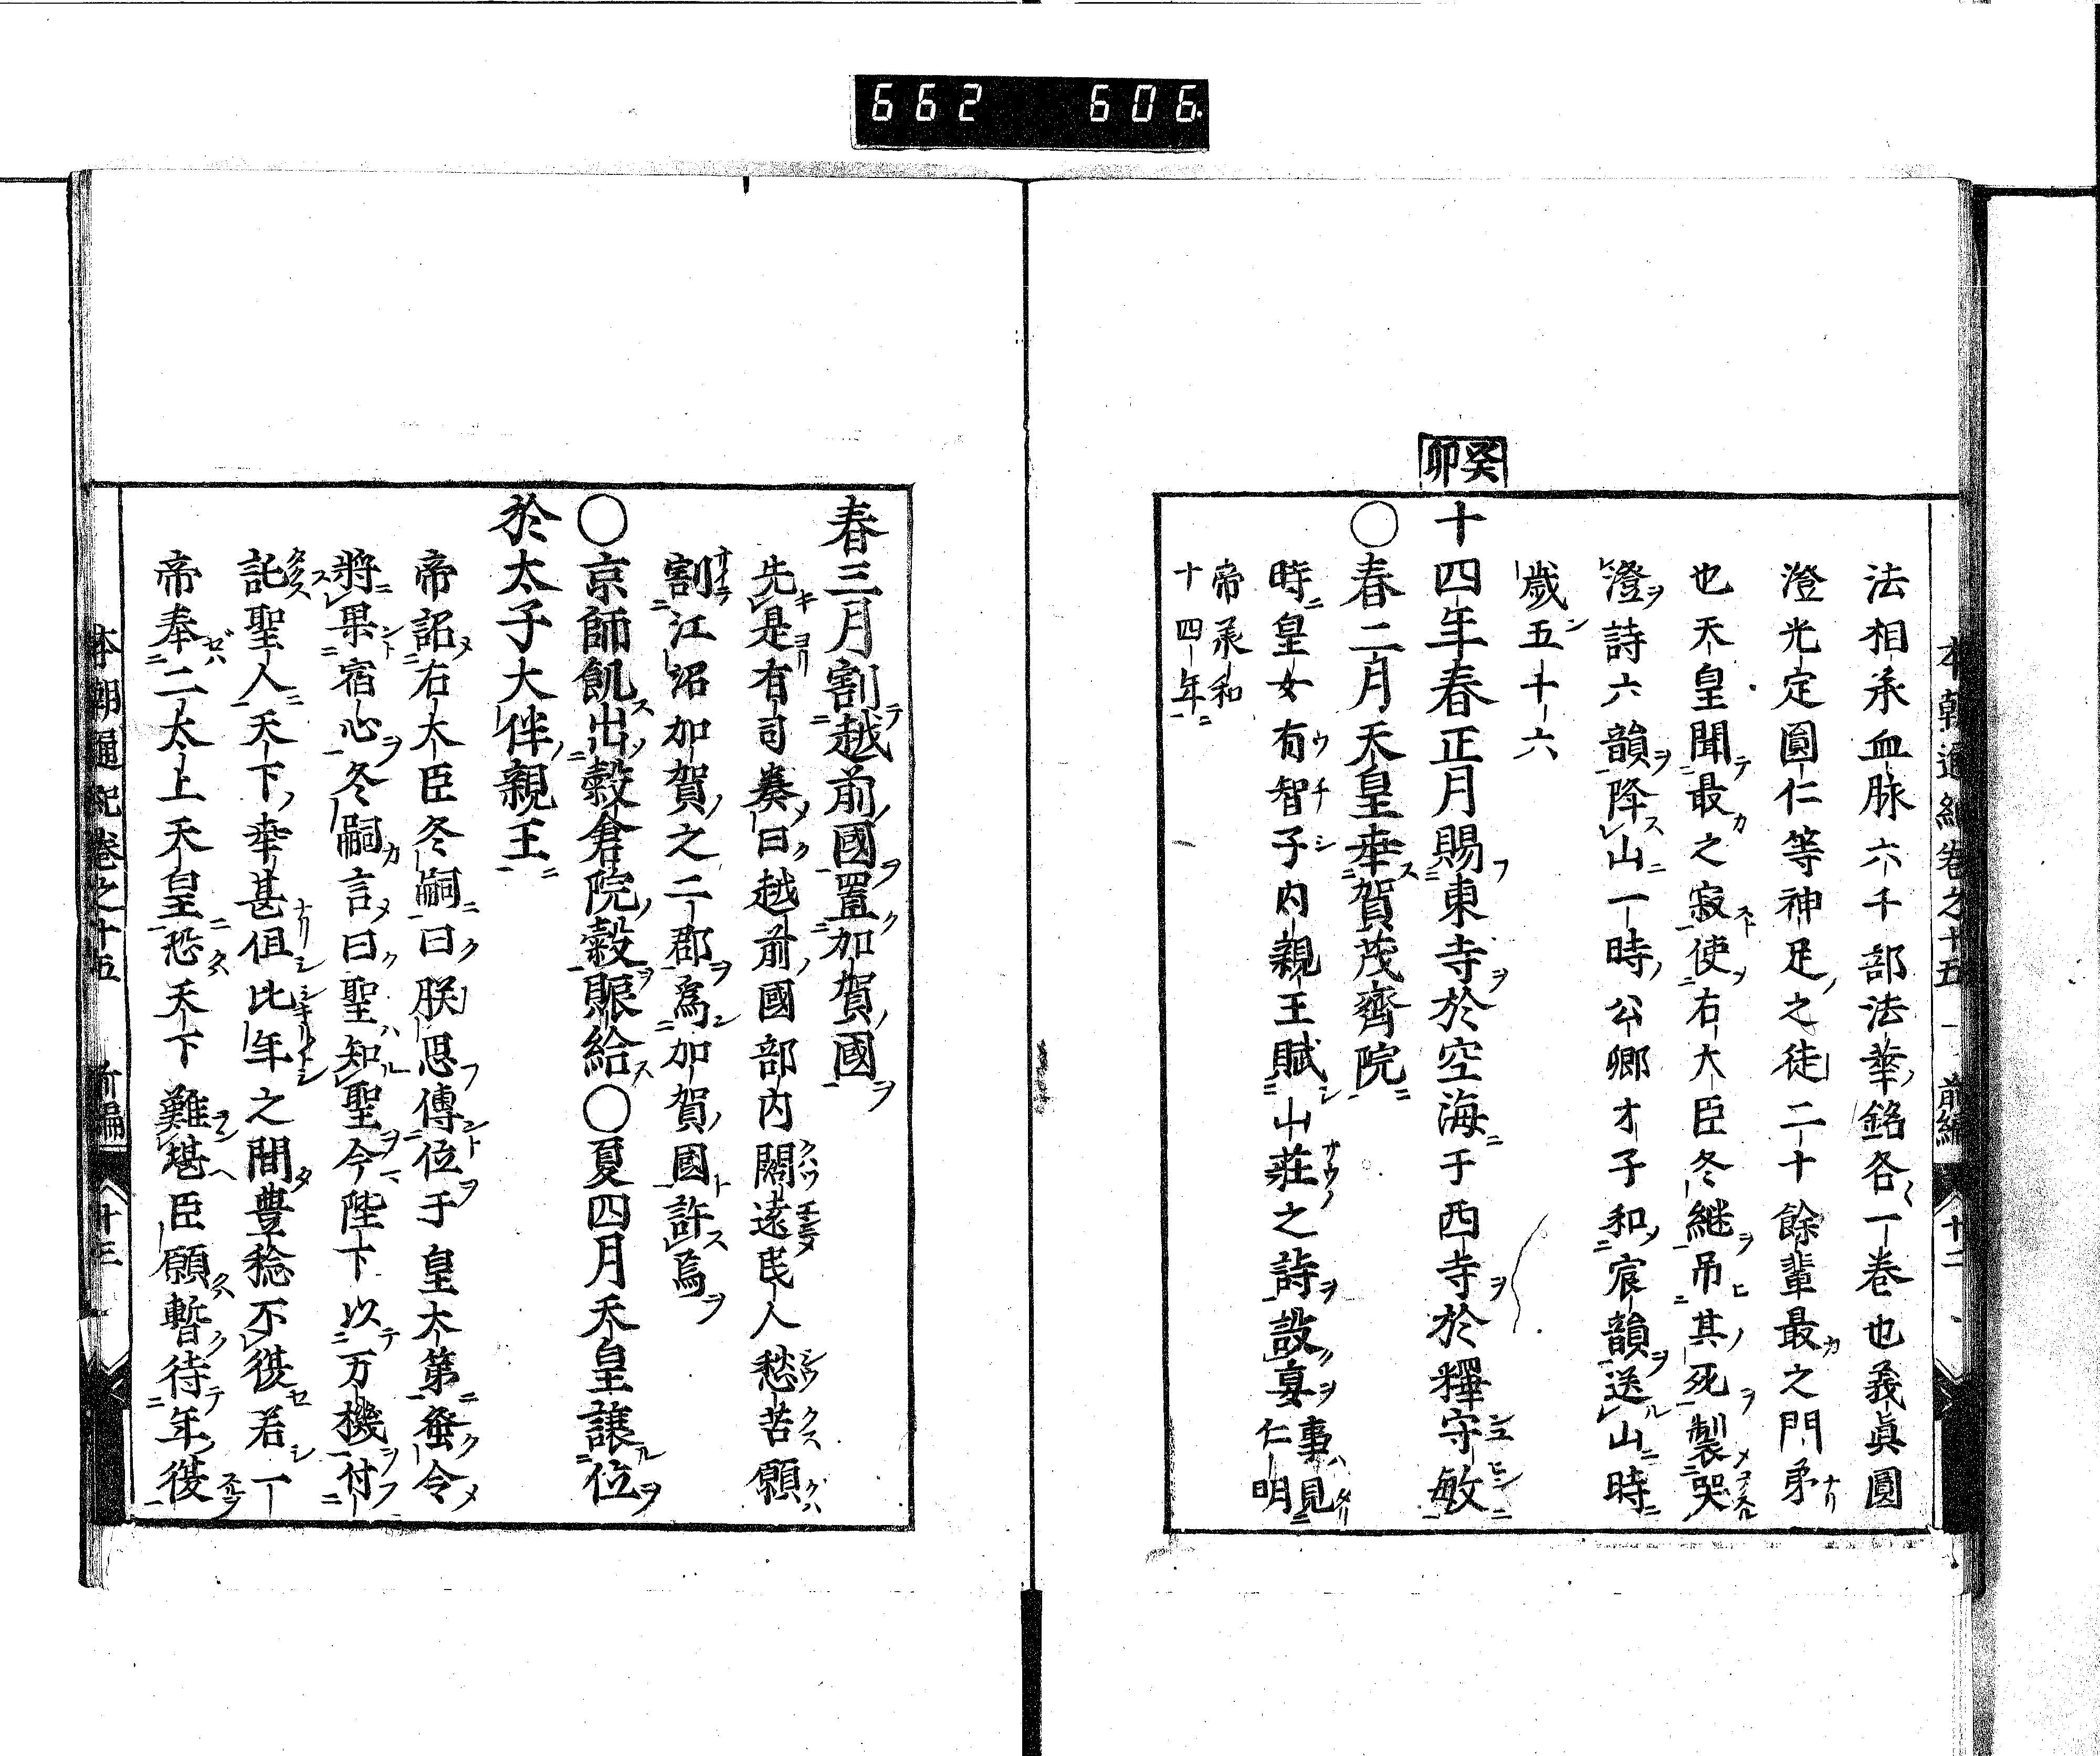 662 606
本朝通紀卷之十五 前編 十二
法相承血脉六千部法華銘各一卷也義眞圓
澄光定圓仁等神足之徒二十餘輩最之門弟
也天皇聞最之寂使右大臣冬継吊其死製哭
澄詩六韻降山一時公卿才子和宸韻送山時
歲五十六
癸卯
十四年春正月賜東寺於空海于西寺於釋守敏
〇春二月天皇幸賀茂齊院
時皇女有智子内親王賦山莊之詩設宴事見仁明
帝承和十四年
春三月割越前國置加賀國
先是有司奏曰越前國部内闊遠民人愁苦願
割江沼加賀之二郡爲加賀國許焉
〇京師飢出穀倉院穀賑給〇夏四月天皇讓位
於太子大伴親王
帝詔右大臣冬嗣曰朕思傳位于皇太第蚤令
將果宿心冬嗣言曰聖知聖今陛下以万機付
託聖人天下幸甚但比年之間豊稔不復若一
帝奉二太上天皇恐天下難堪臣願暫待年復
本朝通紀卷之十五 前編 十三